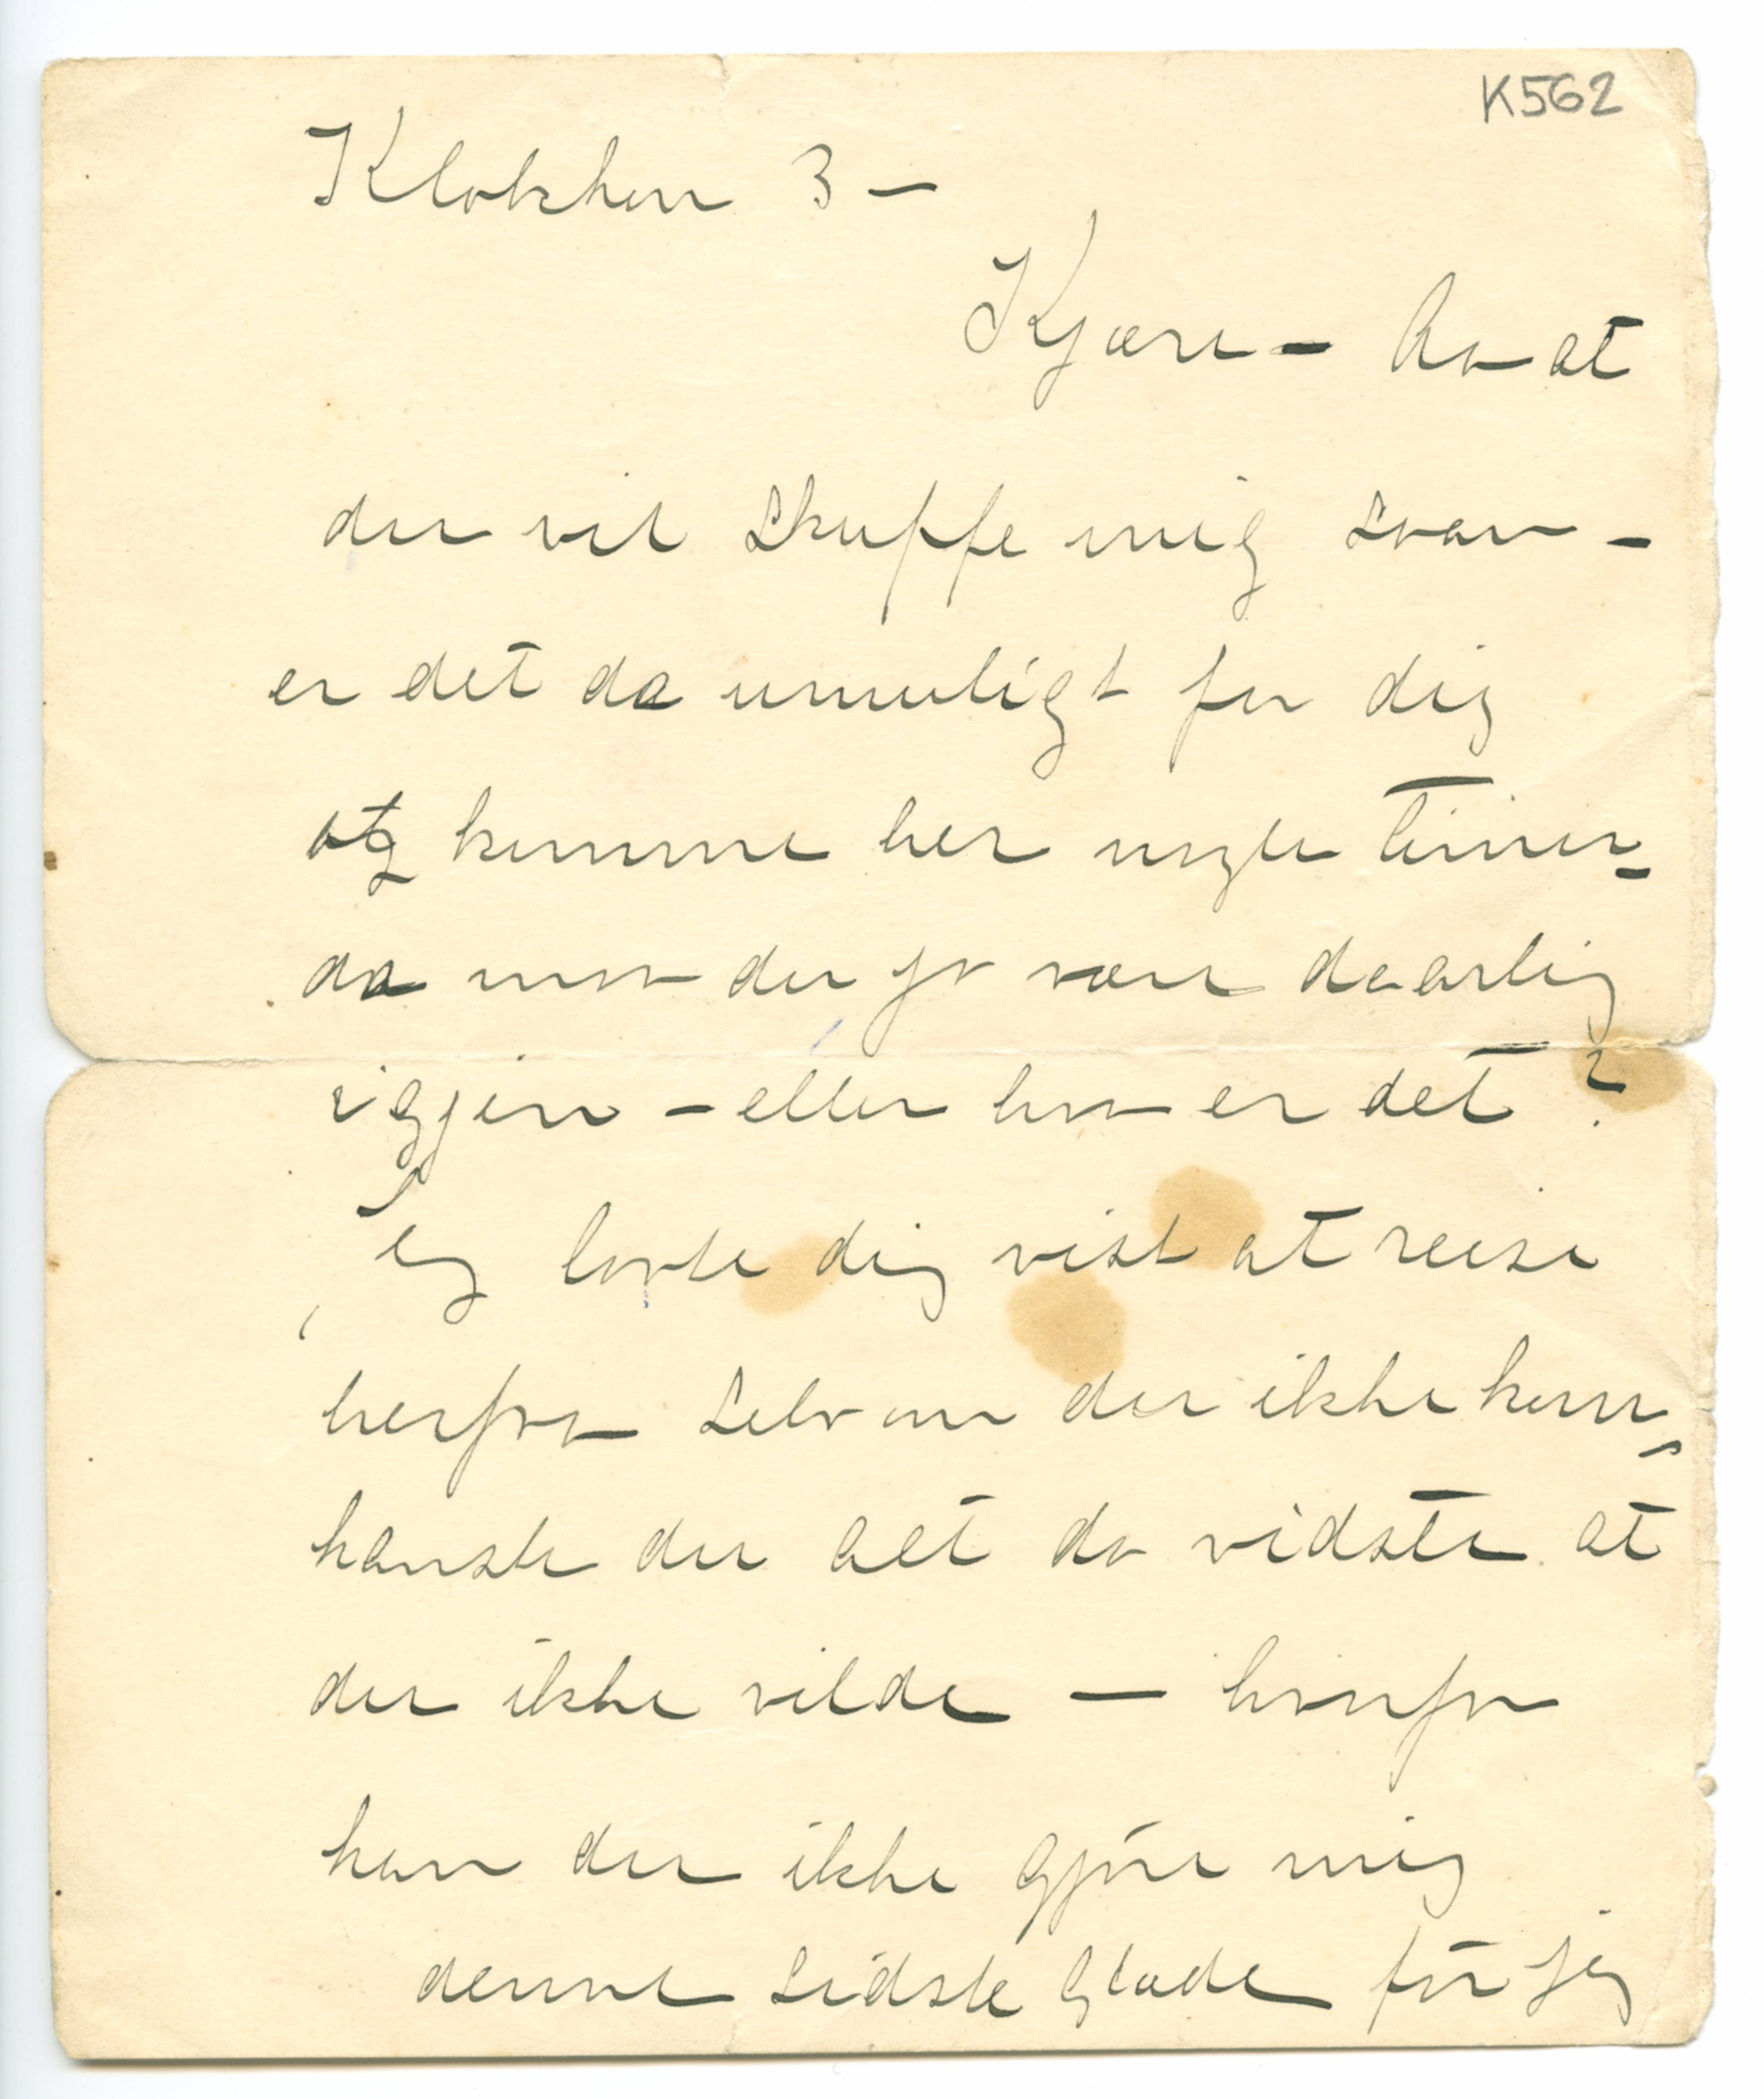 K562
Klokken 3 –
Kjære – Aa at
du vil skuffe mig saa –
er det da umuligt for dig
at komme her nogle timer –
da maa du jo være daarlig
igjen – eller hva er det?
Jeg lovte dig vist at reise
herfra selv om du ikke kom –
kanske du alt da vidste at
du ikke vilde – hvorfor
kan du ikke gjöre mig
denne sidste glæde før jeg